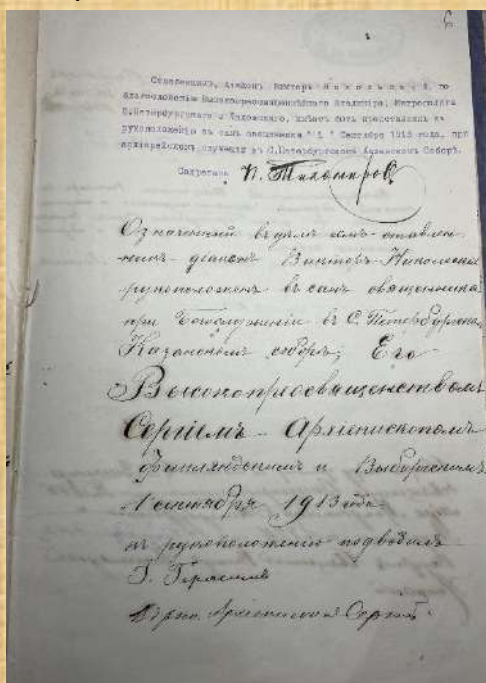 Ставленникъ, діаконъ Викторъ Никольскій, по
благословенію Высокопреосвященнѣйшаго Владиміра, Митрополита
С.Петербургскаго и Ладожскаго, имѣетъ быть представленъ къ
рукоположенію въ санъ священника "1" Сентября 1913 года, при
архіерейскомъ служеніи въ С.Петербургскомъ Казанскомъ Соборѣ.
Секретарь П. Тихомировъ
Означенный въ семъ ставлен-
никъ діаконъ Викторъ Никольскій
рукоположенъ въ санъ священника
при Богослуженіи въ С. Петербургскомъ
Казанскомъ соборѣ, Его
Высокопреосвященствомъ
Сергіемъ Архіепископомъ
Финляндскимъ и Выборгскимъ
1 сентября 1913 года
къ рукоположенію подводилъ
Архіепископъ Сергій.